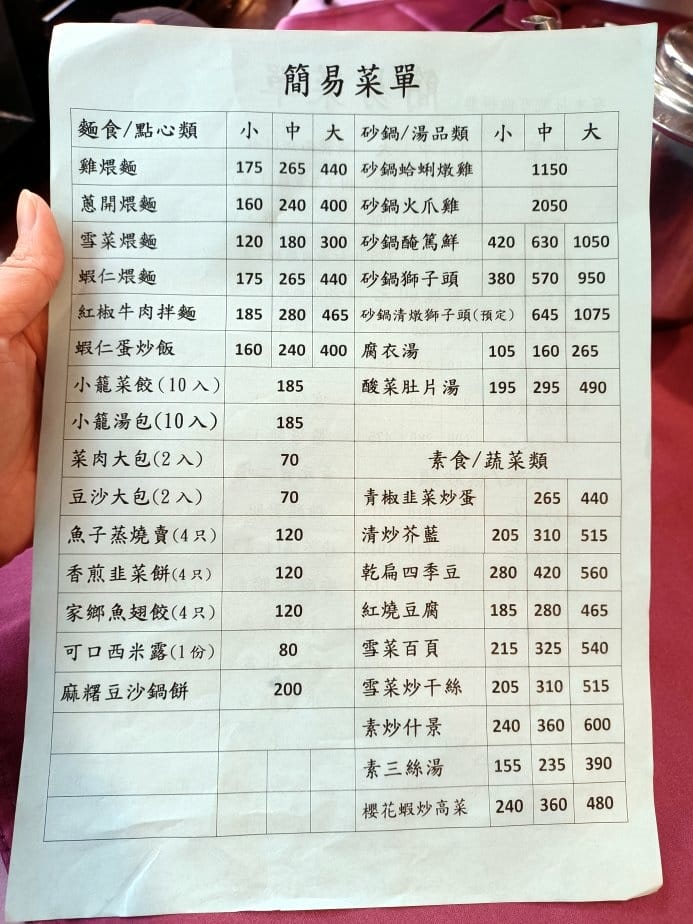 簡易菜單
麵食/點心類 小 中 大 砂鍋/湯品類 小 中 大
雞煨麵 175 265 440 砂鍋蛤蜊燉雞 1150
蔥開煨麵 160 240 400 砂鍋火爪雞 2050
雪菜煨麵 120 180 300 砂鍋醃篤鮮 420 630 1050
蝦仁煨麵 175 265 440 砂鍋獅子頭 380 570 950
紅椒牛肉拌麵 185 280 465 砂鍋清燉獅子頭(預定) 645 1075
蝦仁蛋炒飯 160 240 400 腐衣湯 105 160 265
小籠菜餃(10入) 185 酸菜肚片湯 195 295 490
小籠湯包(10入) 185
菜肉大包(2入) 70 素食/蔬菜類
豆沙大包(2入) 70 青椒韭菜炒蛋 265 440
魚子蒸燒賣(4只) 120 清炒芥藍 205 310 515
香煎韭菜餅(4只) 120 乾扁四季豆 280 420 560
家鄉魚翅餃(4只) 120 紅燒豆腐 185 280 465
可口西米露(1份) 80 雪菜百頁 215 325 540
麻糬豆沙鍋餅 200 雪菜炒干絲 205 310 515
素炒什景 240 360 600
素三絲湯 155 235 390
櫻花蝦炒高菜 240 360 480